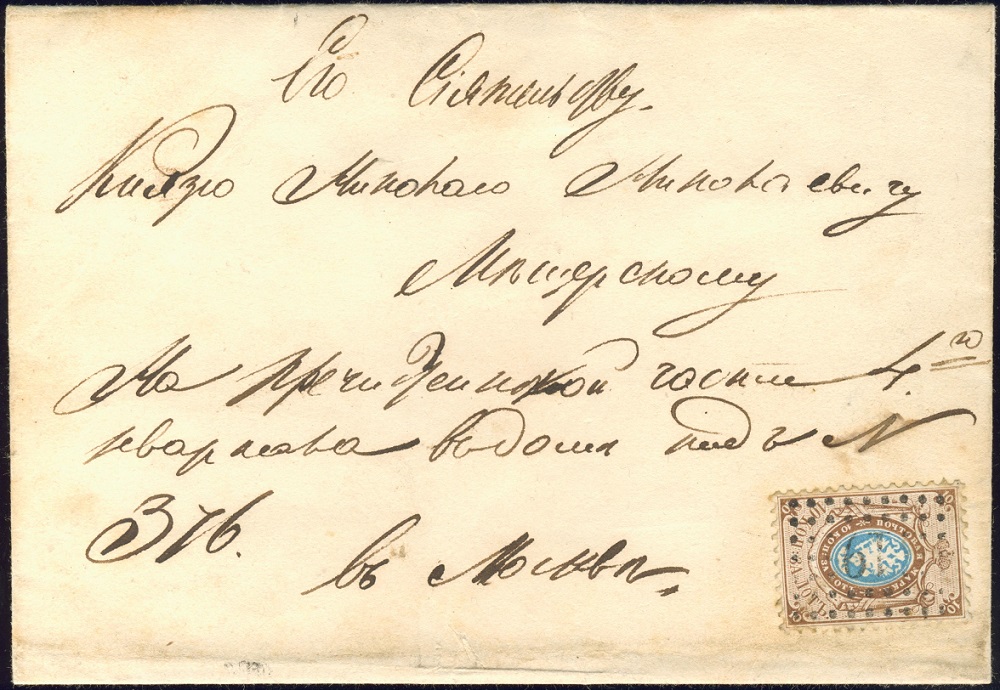 Его Сіятельству.
Князю Николаю Николаевичу
Мещерскому
На Пречистенской части 4.го
квартала въ доме подъ N
376.
въ Москве,
ПОЧТОВАЯ МАРКА
10
10